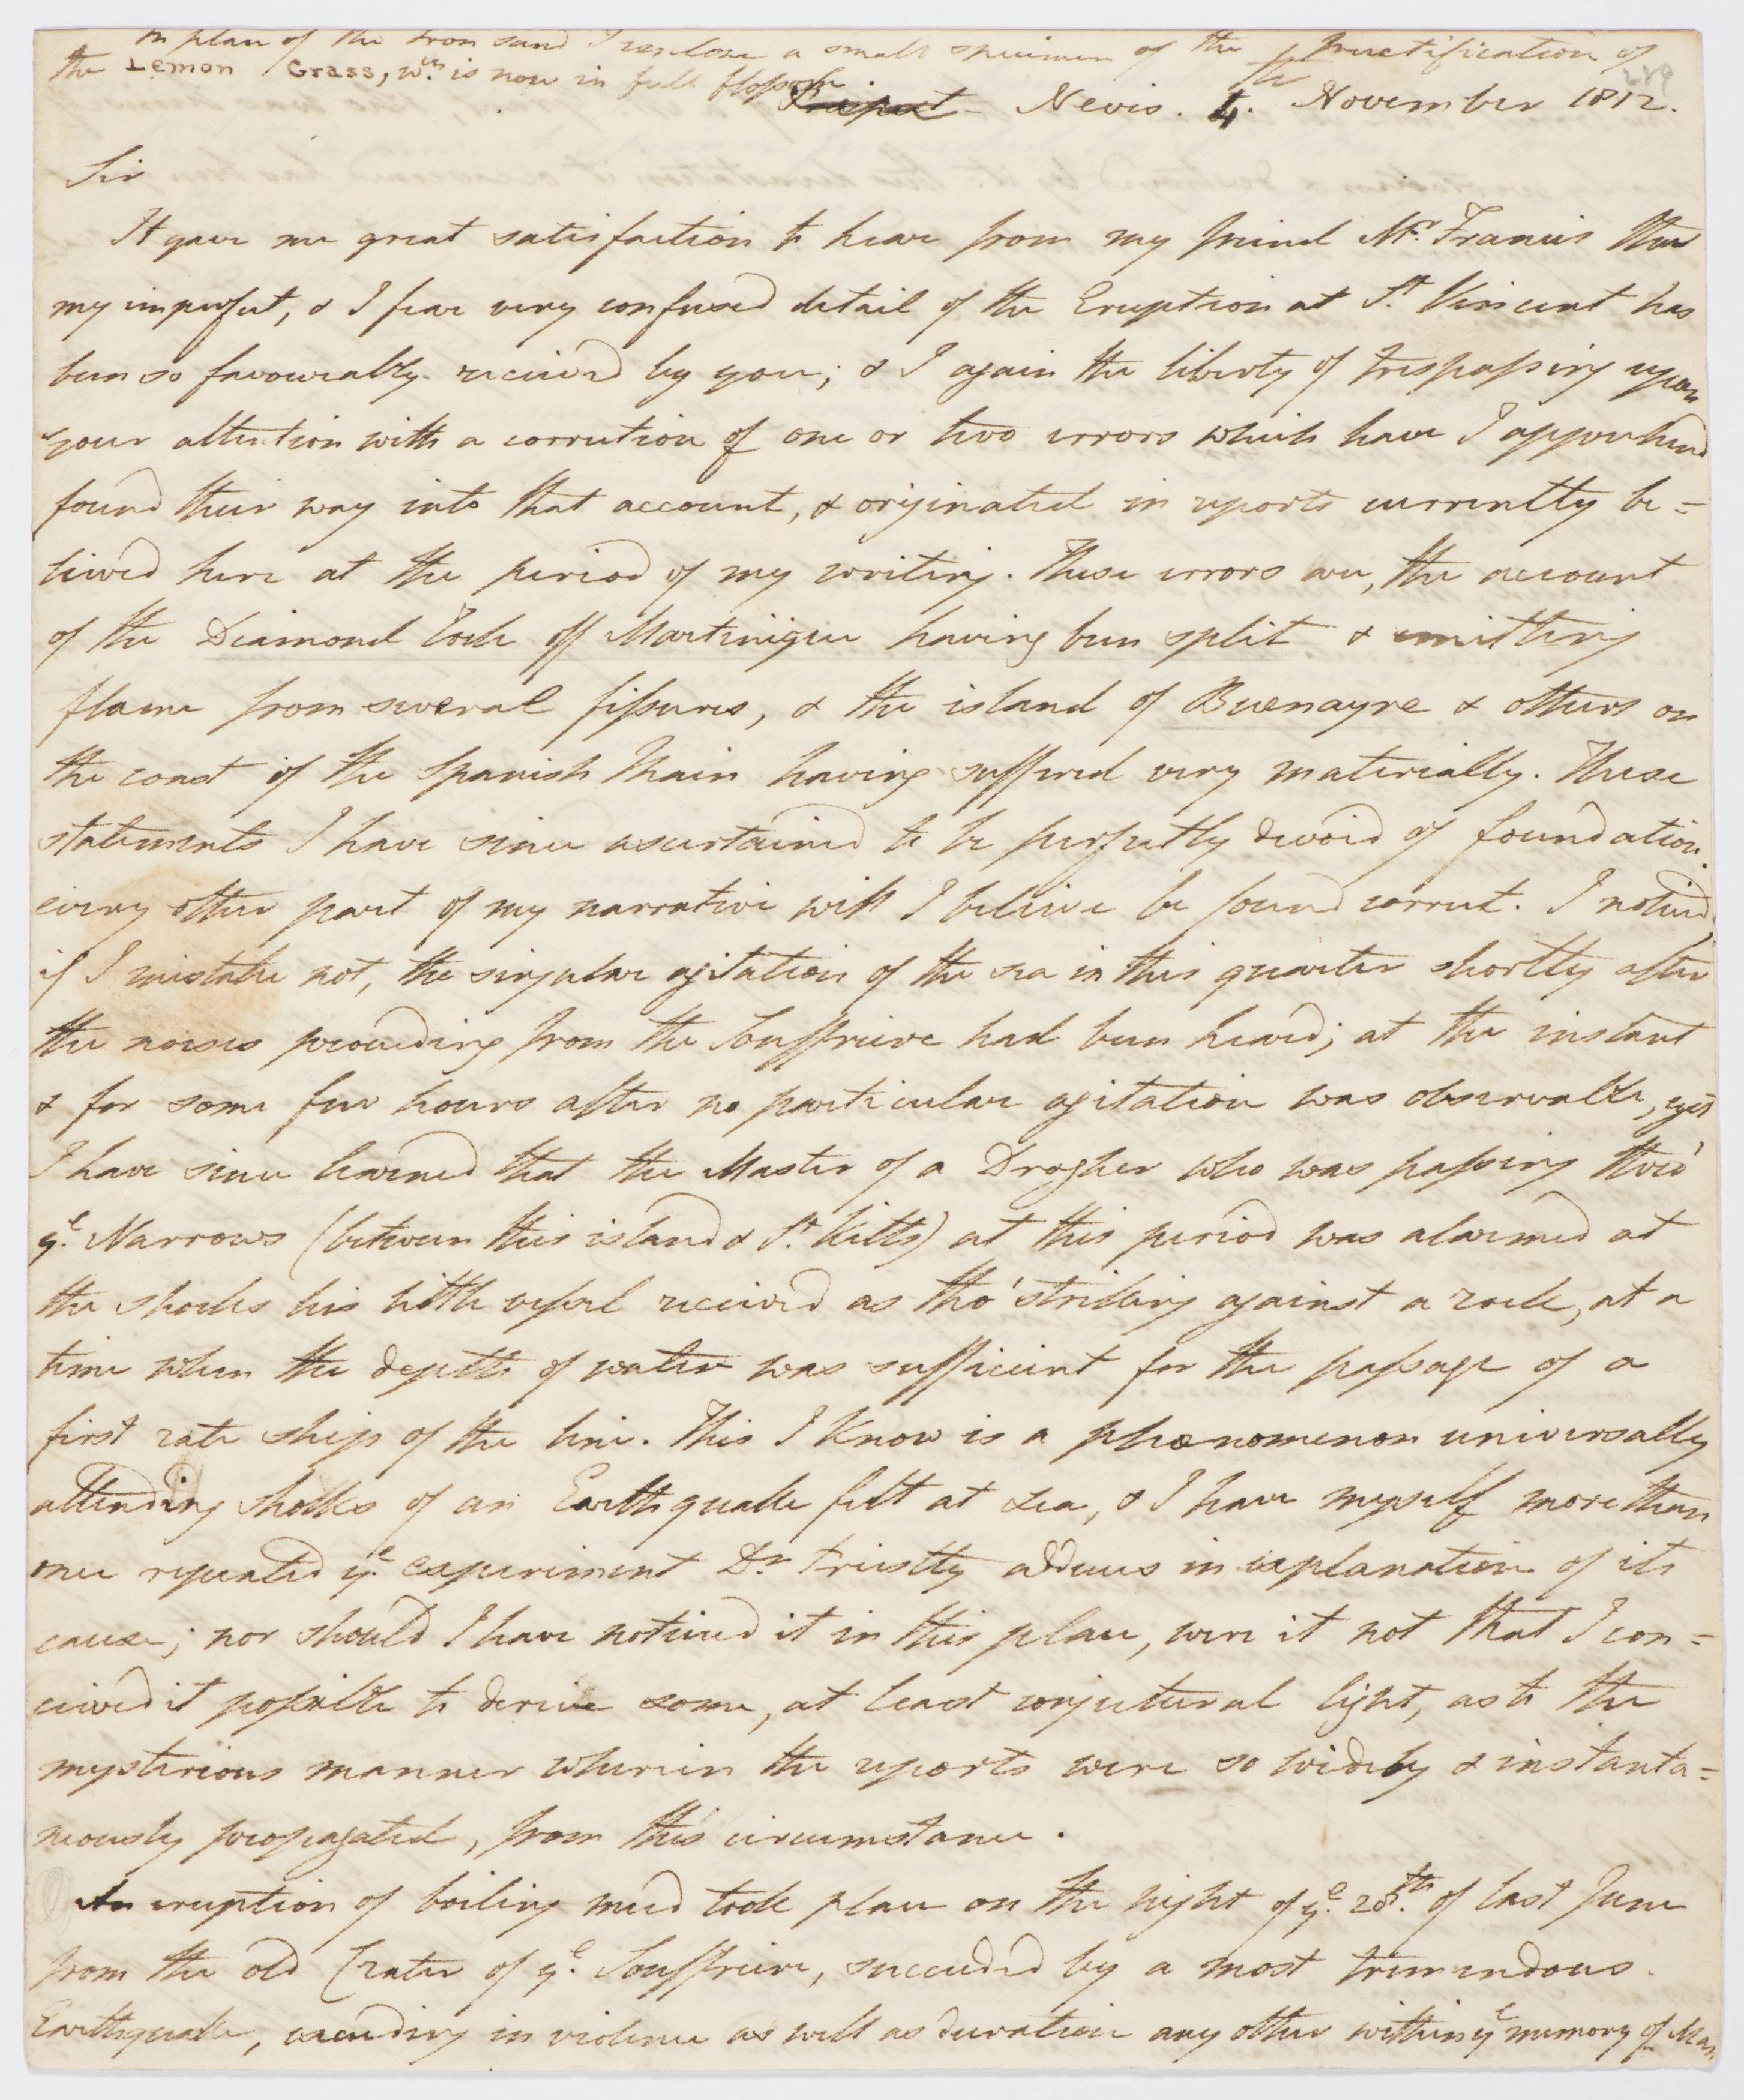 In place of the Iron sand I enclose a small specimen of the fructification of
the Lemon Grass, wch. is now in full blossom
Nevis. 4. November 1812.
Sir
It gave me great satisfaction to hear from my friend Mr. Francis that
my imperfect, & I fear very confused detail of the Eruption at St. Vincent has
been so favourably received by you; & I again the liberty of trespassing upon
your attention with a correction of one or two errors which have I apprehend
found their way into that account, & originated in reports currently be=
lieved here at the period of my writing. These errors are, the account
of the Diamond Rock off Martinique having been split & emitting
flame from several fissures, & the island of Buenayre & others on
the coast of the Spanish Main having suffered very materially. These
statements I have since ascertained to be perfectly devoid of foundation.
every other part of my narrative will I believe be found correct. I noticed,
if I mistake not, the singular agitation of the sea in this quarter shortly after
the noises proceeding from the Souffriere had been heard; at the instant
& for some few hours after no particular agitation was observable, yet
I have since learned that the Master of a Drogher who was passing thro'
ye. Narrows (between this island & St. Kitts) at this period was alarmed at
the shocks his little vessel received as tho' striking against a rock, at a
time when the depth of water was sufficient for the passage of a
first rate ship of the line. This I know is a phænomenon universally
attending shocks of an Earthquake felt at sea, & I have myself more than
once repeated ye. experiment Dr. Priestly adduces in explanation of its
cause; nor should I have noticed it in this place, were it not that I con=
ceived it possible to derive some, at least conjectural light, as to the
mysterious manner wherein the reports were so widely & instanta=
neously propagated, from this circumstance.
An eruption of boiling mud took place on the night of ye. 28th. of last June
from the old Crater of ye. Souffriere, succeeded by a most tremendous
Earthquake, exceeding in violence as well as duration any other within ye memory of Man.